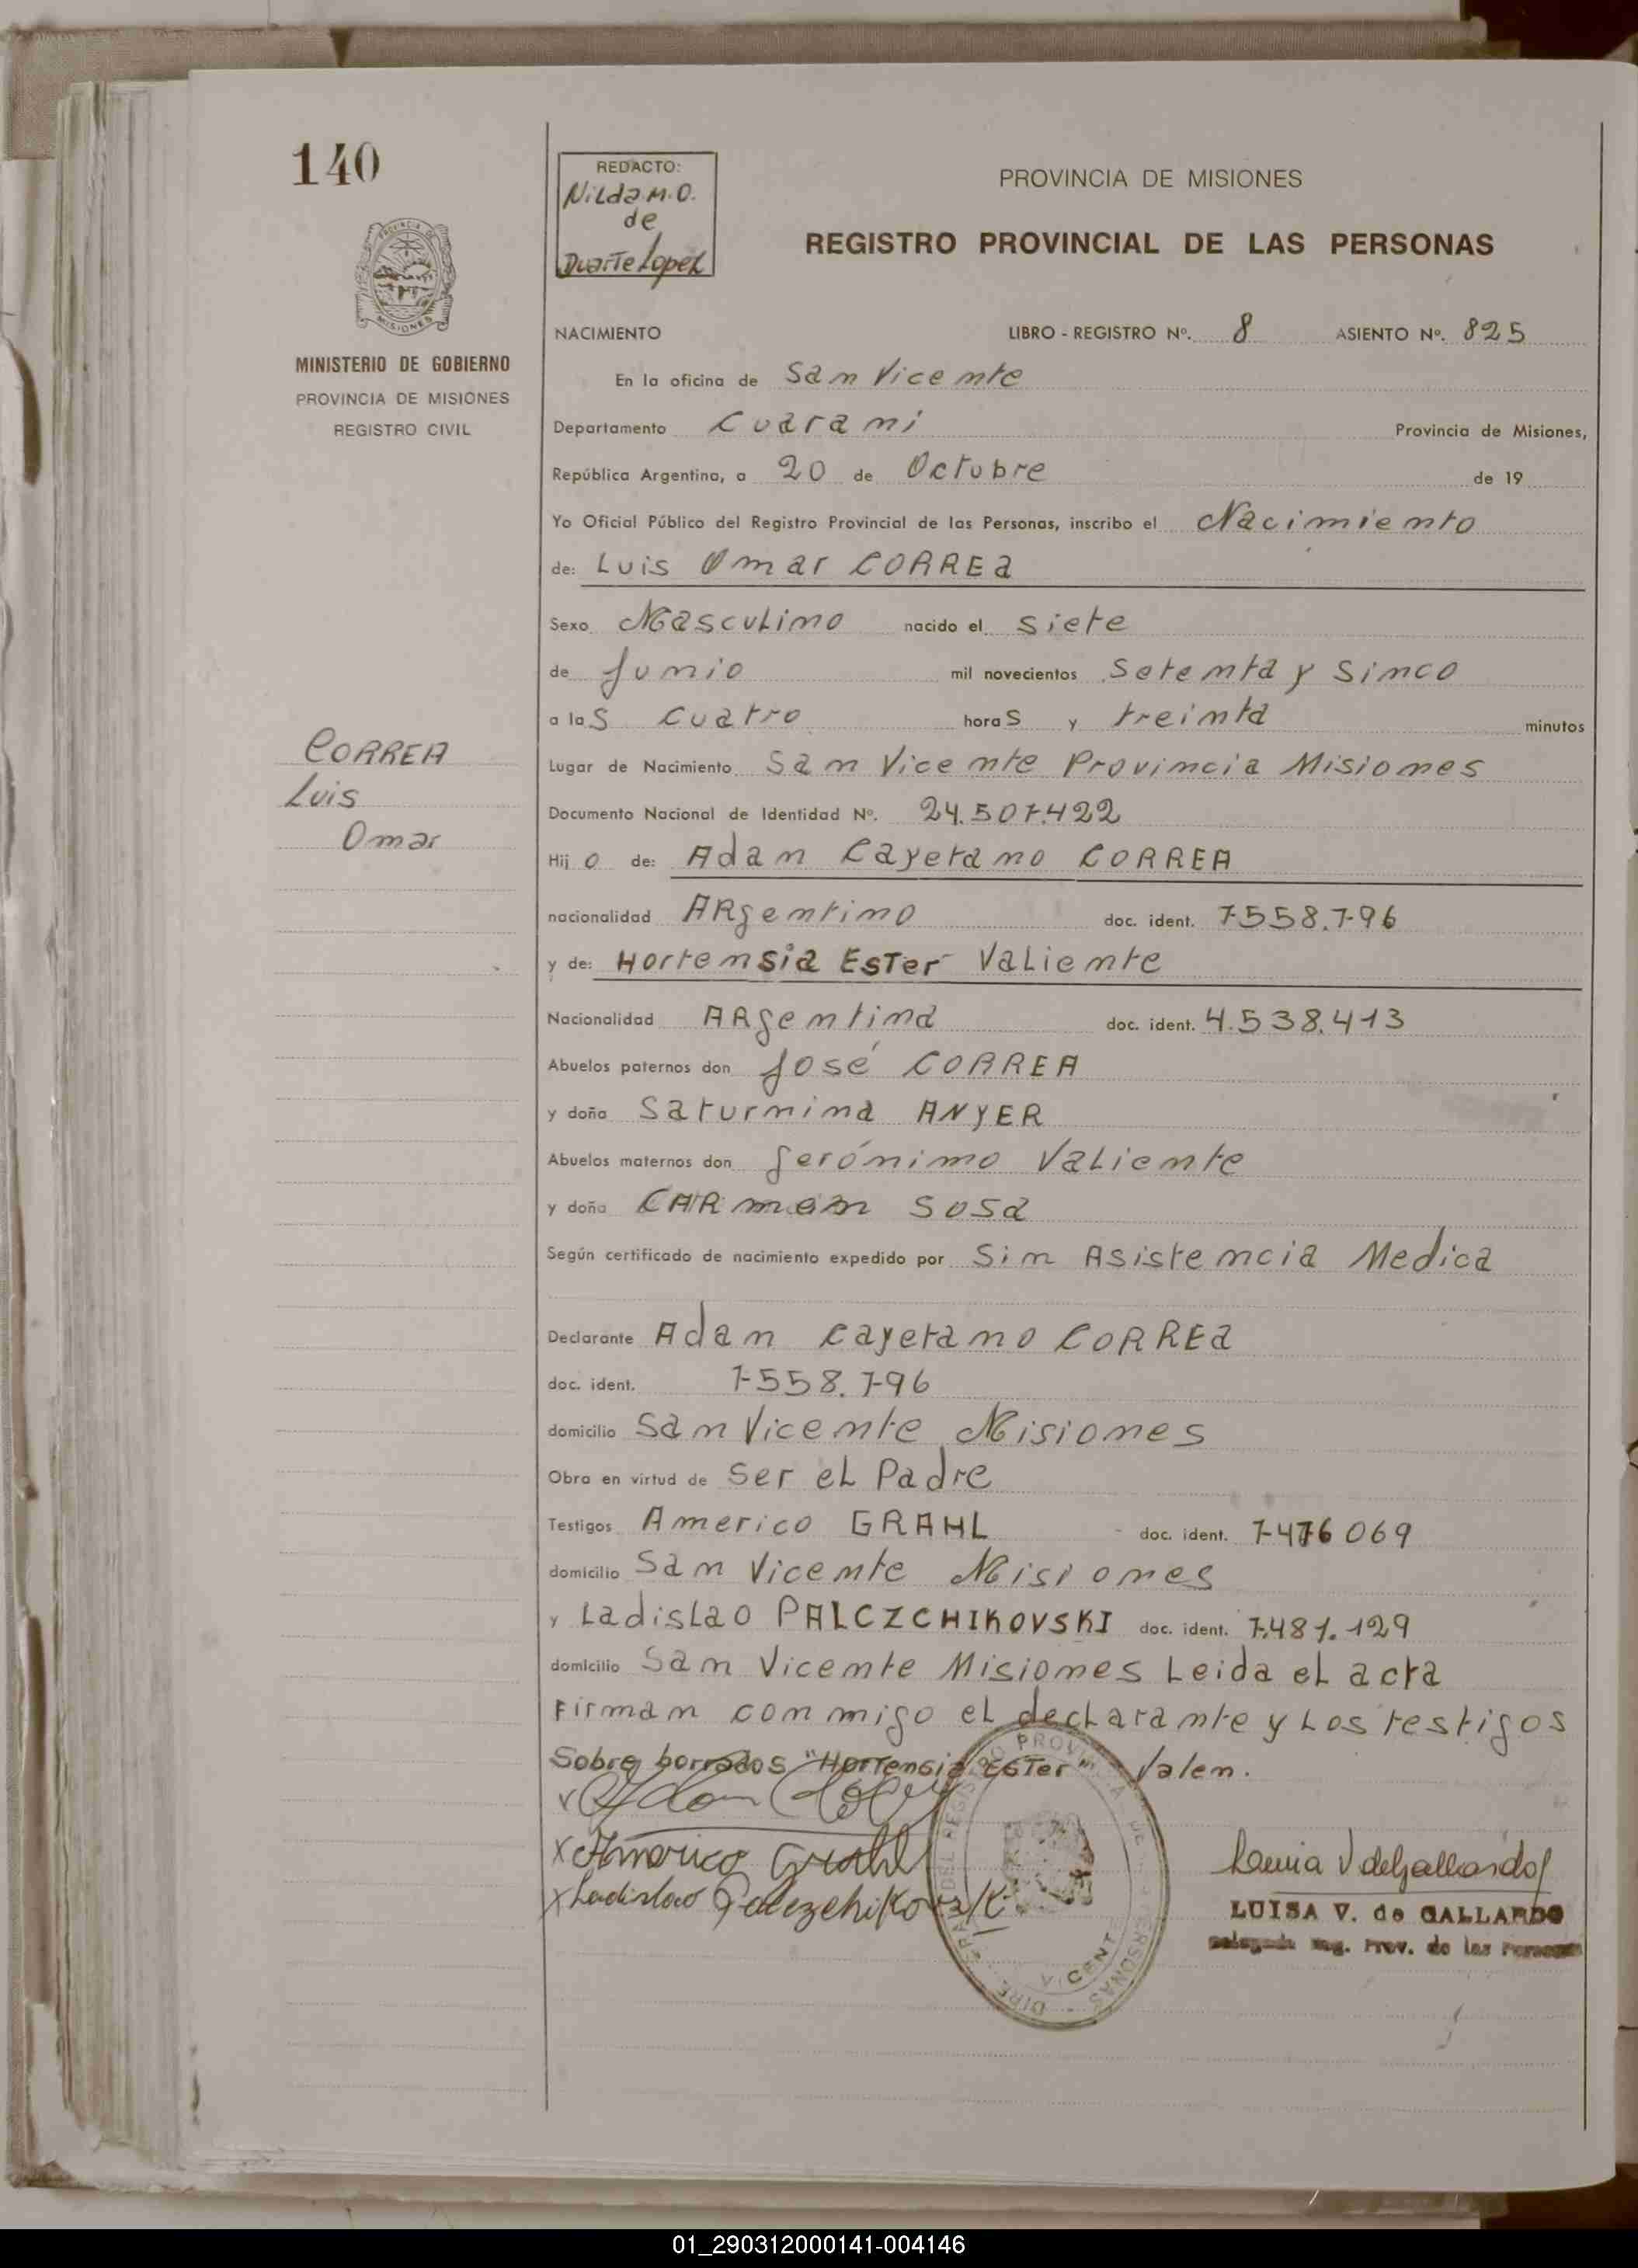 140
REDACTO:
Nilda M.O.
de
Duarte Lopez
PROVINCIA DE MISIONES
REGISTRO PROVINCIAL DE LAS PERSONAS
MINISTERIO DE GOBIERNO
PROVINCIA DE MISIONES
REGISTRO CIVIL
NACIMIENTO LIBRO - REGISTRO Nº. 8 ASIENTO Nº. 825
En la oficina de San Vicente
Departamento Cuarani Provincia de Misiones,
República Argentina, a 20 de Octubre de 19
Yo Oficial Público del Registro Provincial de las Personas, inscribo el Nacimiento
de: Luis Omar CORREA
Sexo Masculino nacido el siete
de Junio mil novecientos Setenta y Sinco
a las cuatro horas y treinta minutos
CORREA
Luis
Omar
Lugar de Nacimiento San Vicente Provincia Misiones
Documento Nacional de Identidad Nº. 24.507.422
Hijo de: Adan Cayetano CORREA
nacionalidad ARgentino doc. ident. 7558.796
y de: Hortensia Ester Valiente
Nacionalidad ARgentina doc. ident. 4.538.413
Abuelos paternos don José CORREA
y doña Saturnina ANYER
Abuelos maternos don Jerónimo Valiente
y doña CARmen Sosa
Según certificado de nacimiento expedido por Sin Asistencia Medica
Declarante Adan Cayetano CORREA
doc. ident. 7558.796
domicilio San Vicente Misiones
Obra en virtud de Ser el Padre
Testigos Americo GRAHL doc. ident. 7476069
domicilio San Vicente Misiones
y Ladislao PALCZCHIKOVSKI doc. ident. 7.481.129
domicilio San Vicente Misiones Leida el acta
Firman conmigo el declarante y los testigos
Sobre borrados "Hortensia Ester" Valen.
Americo Grahl
Ladislao Palczchikovski
LUISA V. de GALLARDO
Delegada Reg. Prov. de las Personas
VICENTE
01_290312000141-004146